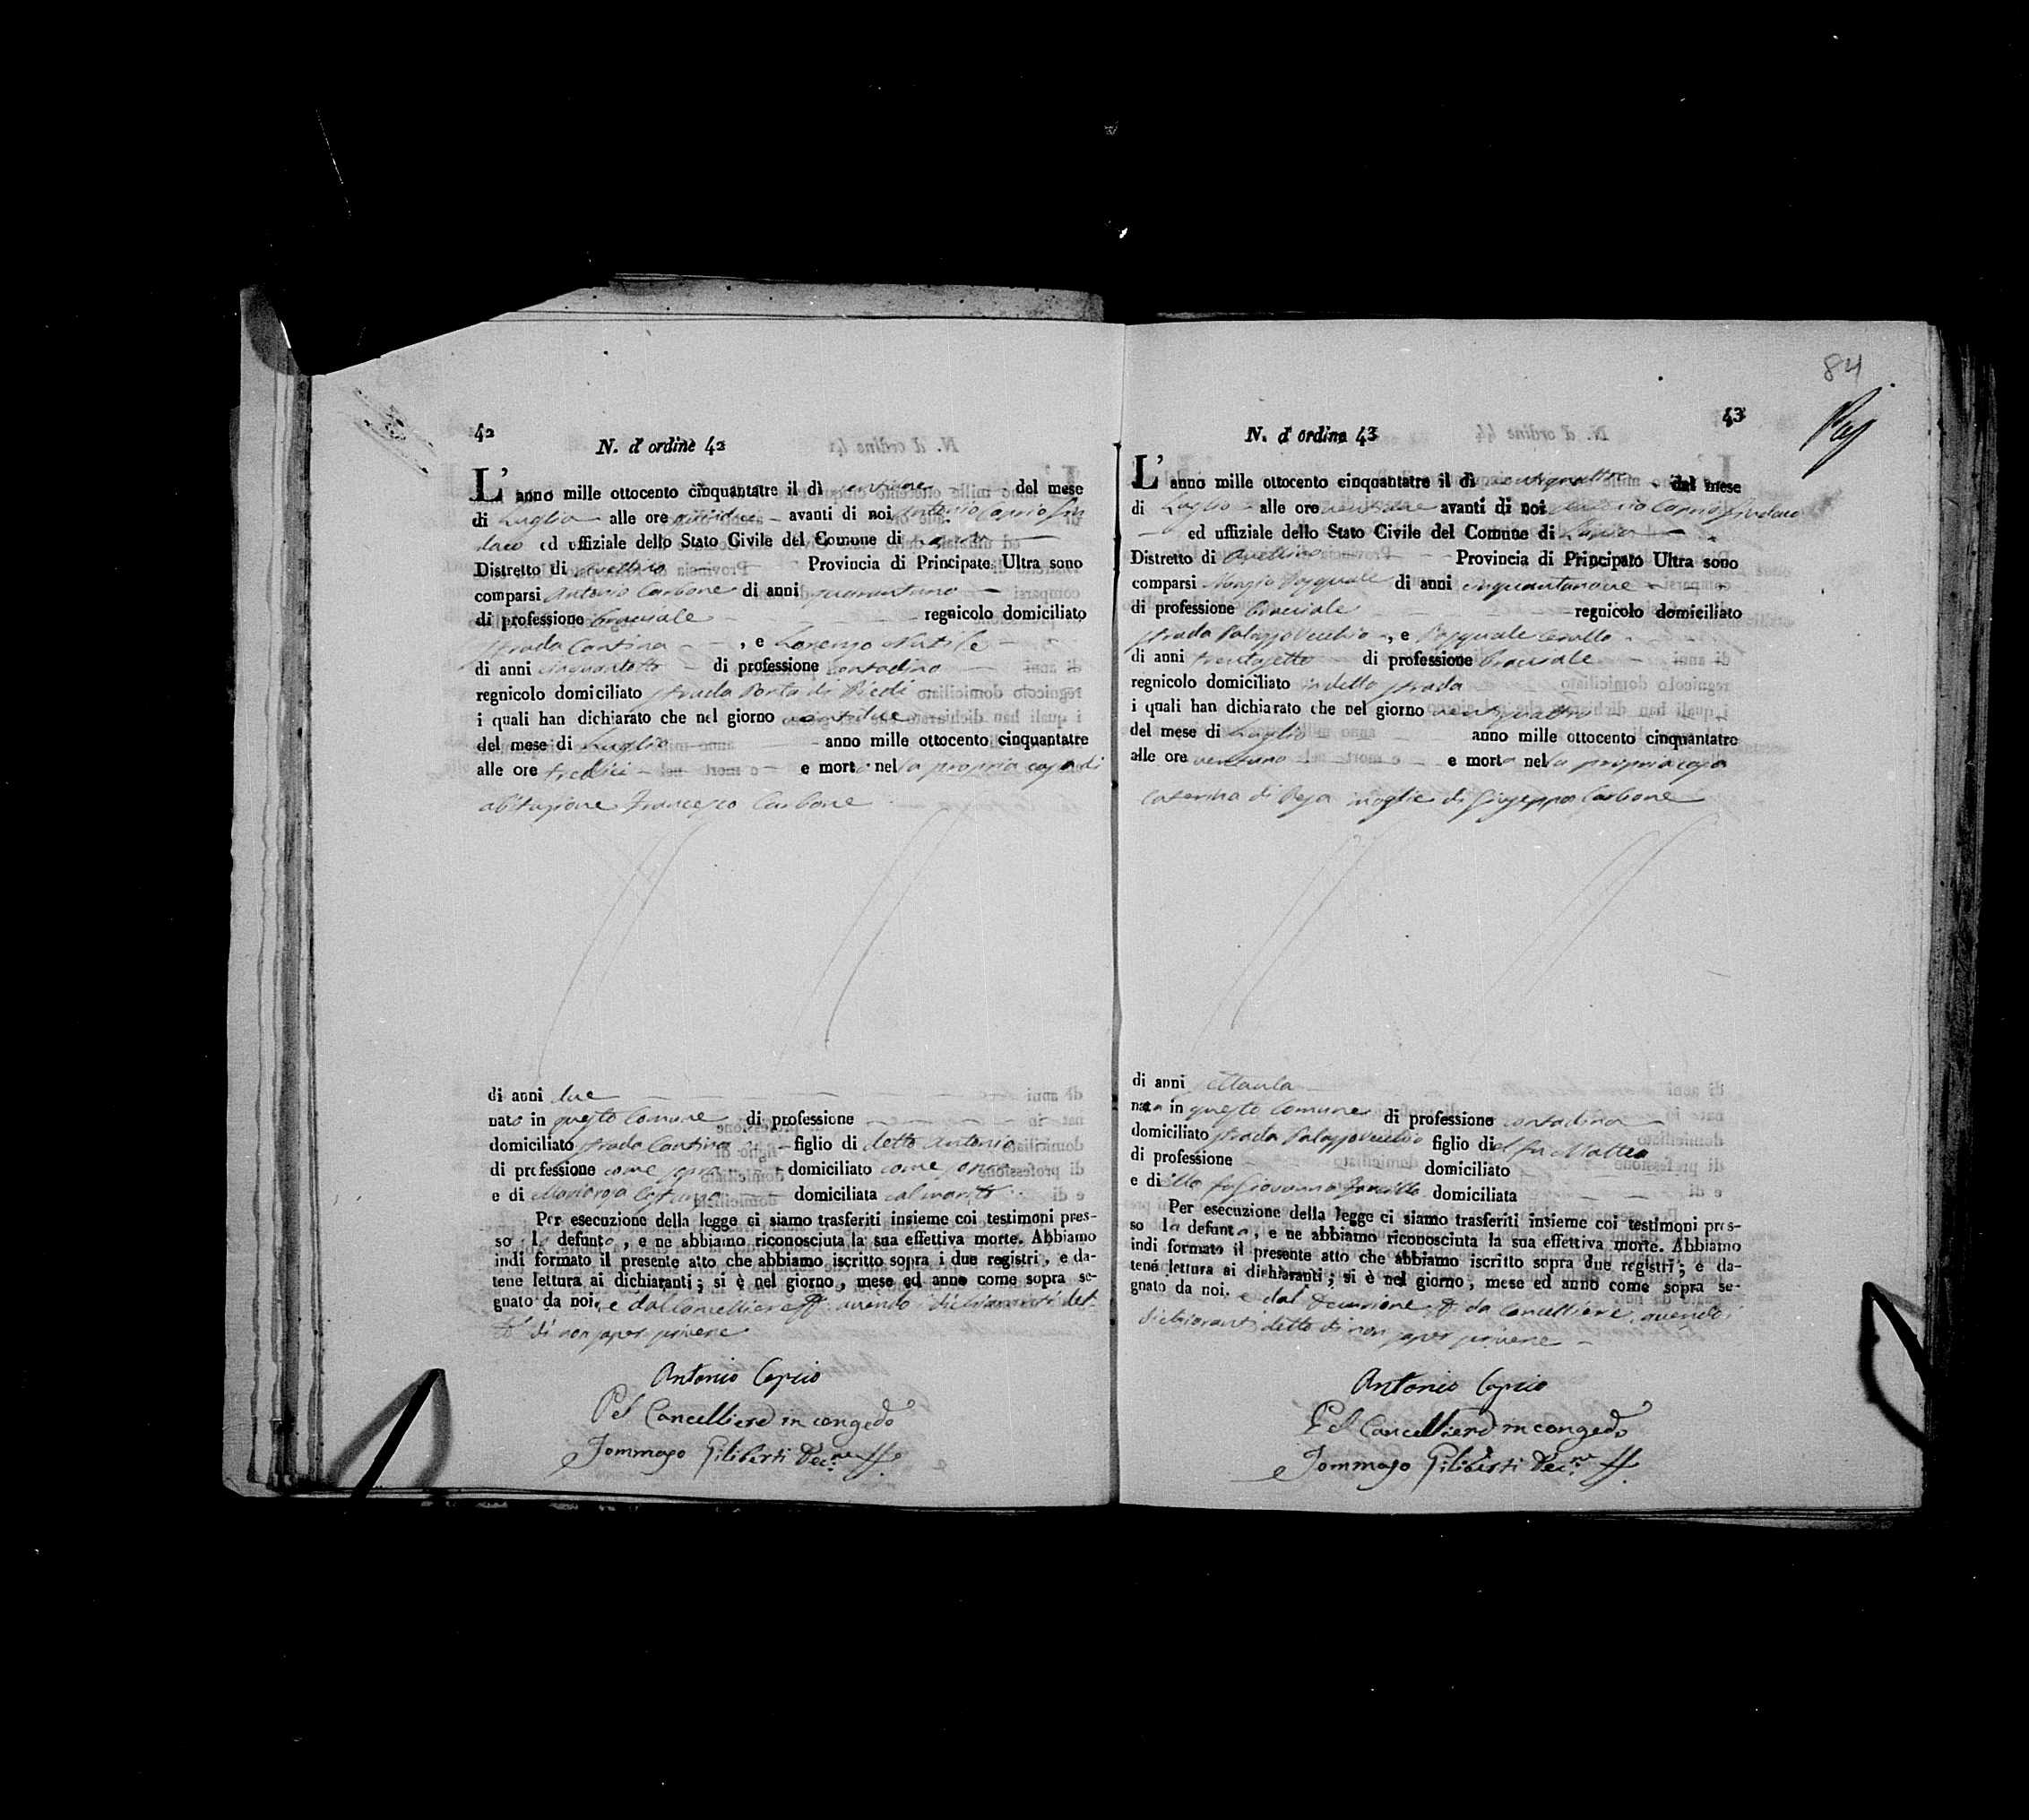 42
N. d' ordine 42
L' anno mille ottocento cinquantatre il dì del mese
di Luglio alle ore avanti di noi Antonio Caprio Sin
daco ed uffiziale dello Stato Civile del Comune di
Distretto di Avellino Provincia di Principato Ultra sono
comparsi Antonio Carbone di anni quarantuno
di professione bracciale regnicolo domiciliato
strada Cantina , e Lorenzo Natile
di anni cinquantotto di professione contadino
regnicolo domiciliato strada Porta di Piedi
i quali han dichiarato che nel giorno ventidue
del mese di Luglio anno mille ottocento cinquantatre
alle ore tredici e morto nella propria casa di
abitazione Francesco Carbone
di anni due
nato in questo Comune di professione
domiciliato strada Cantina figlio di detto Antonio
di professione come sopra domiciliato come sopra
e di Mariarosa domiciliata col marito
Per esecuzione della legge ci siamo trasferiti insieme coi testimoni pres-
so lo defunto, e ne abbiamo riconosciuta la sua effettiva morte. Abbiamo
indi formato il presente atto che abbiamo iscritto sopra i due registri, e da-
tene lettura ai dichiaranti; si è nel giorno, mese ed anno come sopra se-
gnato da noi, e dal Cancelliere ff. avendo i dichiaranti det
to di non saper scrivere
Antonio Caprio
Pel Cancelliere in congedo
Tommaso Giliberti Dec.ne ff.
84
43
N. d' ordine 43
L' anno mille ottocento cinquantatre il dì ventiquattro del mese
di Luglio alle ore avanti di noi Antonio Caprio Sindaco
ed uffiziale dello Stato Civile del Comune di
Distretto di Avellino Provincia di Principato Ultra sono
comparsi Pasquale di anni cinquantanove
di professione bracciale regnicolo domiciliato
strada Palazzo Vecchio , e Pasquale Cerullo
di anni trentasette di professione bracciale
regnicolo domiciliato in detta strada
i quali han dichiarato che nel giorno ventiquattro
del mese di Luglio anno mille ottocento cinquantatre
alle ore ventuno e morta nella propria casa
Caterina di Pesa moglie di Giuseppe Carbone
di anni ottanta
nata in questo Comune di professione contadina
domiciliato strada Palazzo Vecchio figlio del fu Matteo
di professione domiciliato
e della fu Giovanna domiciliata
Per esecuzione della legge ci siamo trasferiti insieme coi testimoni pres-
so la defunta, e ne abbiamo riconosciuta la sua effettiva morte. Abbiamo
indi formato il presente atto che abbiamo iscritto sopra due registri; e da-
tene lettura ai dichiaranti; si è nel giorno, mese ed anno come sopra se-
gnato da noi. e dal Decurione ff. da Cancelliere, avendo i
dichiaranti detto di non saper scrivere
Antonio Caprio
Pel Cancelliere in congedo
Tommaso Giliberti Dec.ne ff.